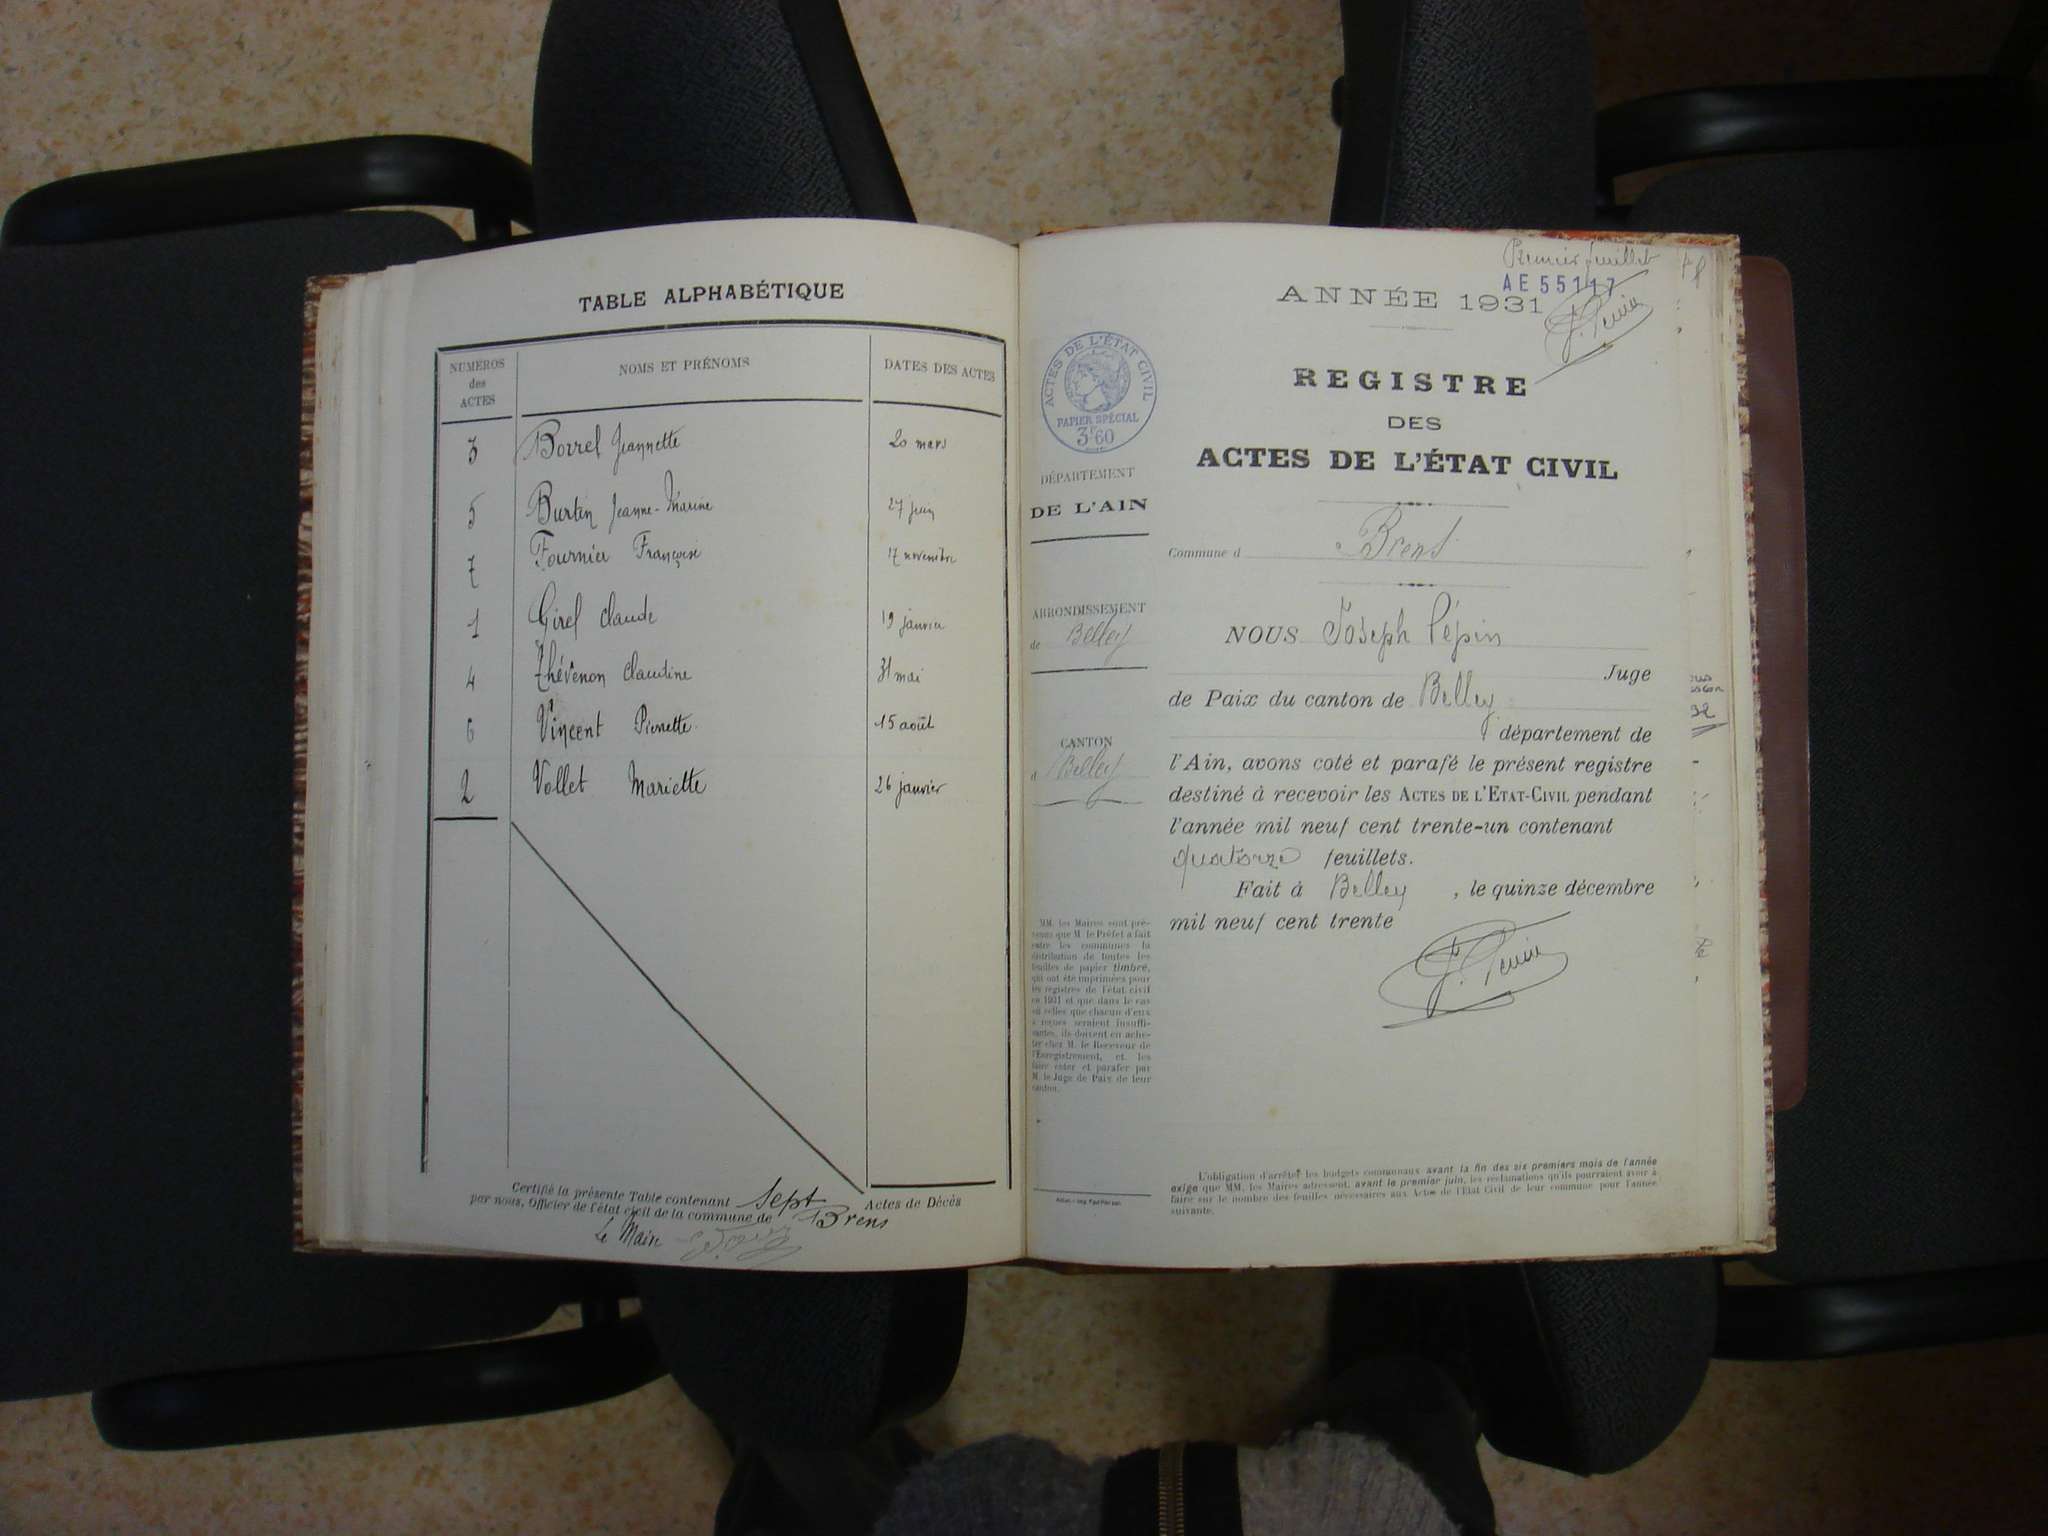 TABLE ALPHABÉTIQUE
NUMÉROS des ACTES NOMS ET PRÉNOMS DATES DES ACTES
3 Borrel Jeannette 20 mars
5 Burtin Jeanne-Marine 27 juin
7 Fournier Françoise 17 novembre
1 Girel Claude 19 janvier
4 Thévenon Claudine 31 mai
6 Vincent Pierrette 15 août
2 Vollet Mariette 26 janvier
Certifié la présente Table contenant Sept Actes de Décès
par nous, Officier de l'état civil de la commune de Brens
Le Maire
Premier feuillet
AE55117
ANNÉE 1931
REGISTRE
DES
ACTES DE L'ÉTAT CIVIL
ACTES DE L'ÉTAT CIVIL
PAPIER SPÉCIAL
3F60
DÉPARTEMENT
DE L'AIN
Commune d Brens
ARRONDISSEMENT
de Belley
CANTON
d Belley
NOUS Joseph Pépin
Juge
de Paix du canton de Belley
département de
l'Ain, avons coté et parafé le présent registre
destiné à recevoir les ACTES DE L'ETAT-CIVIL pendant
l'année mil neuf cent trente-un contenant
quatorze feuillets.
Fait à Belley, le quinze décembre
mil neuf cent trente
J. Pépin
MM. les Maires sont pré-
venus que M. le Préfet a fait
entre les communes la
distribution de toutes les
feuilles de papier timbré,
qui ont été imprimées pour
les registres de l'état civil
en 1931 et que dans le cas
où celles que chacun d'eux
a reçues seraient insuffi-
santes, ils doivent en ache-
ter chez M. le Receveur de
l'Enregistrement, et les
faire coter et parafer par
M. le Juge de Paix de leur
canton.
L'obligation d'arrêter les budgets communaux avant la fin des six premiers mois de l'année
exige que MM. les Maires adressent, avant le premier juin, les réclamations qu'ils pourraient avoir à
faire sur le nombre des feuilles nécessaires aux Actes de l'Etat Civil de leur commune pour l'année
suivante.